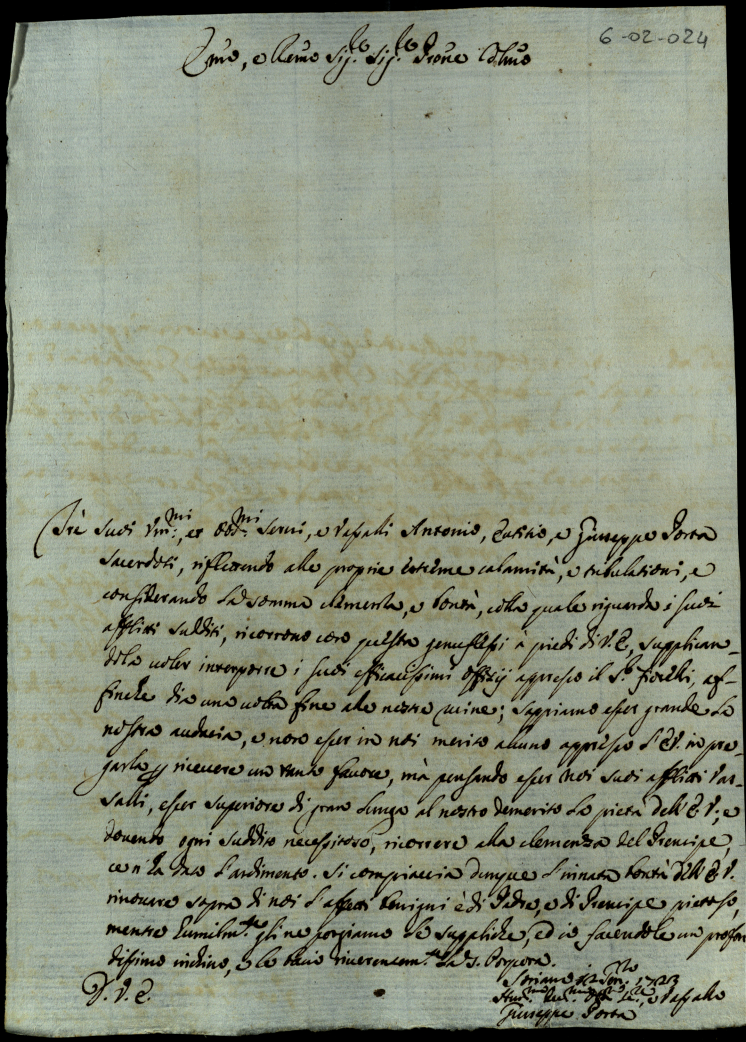 6-02-024
Emo, e Rmo Sig.re Sig.re Prone Colmo
Trè suoi Um.mi, et Obb.mi Servi, e Vassalli Antonio, Tutitio, e Giuseppe Porta
Sacerdoti, riflettendo alle proprie estreme calamità, e tribulationi, e
considerando la somma clemenza, e bontà, colla quale riguarda i suoi
afflitti sudditi, ricorrono con questa genuflessi à piedi di V. E., supplican-
dola voler interporre i suoi efficacissimi offitij appresso il S.r Fiorelli, af-
finche dia una volta fine alle nostre ruine; sappiamo esser grande la
nostra audacia, e non esser in noi merito alcuno appresso l'E.V. in pre-
garla p ricevere un tanto favore, mà pensando esser noi suoi afflitti Vas-
salli, esser superiore di gran lunga al nostro demerito la pietà dell'E. V.; e
dovendo ogni suddito necessitoso, ricorrere alla clemenza del Prencipe,
ce n'hà dato l'ardimento. Si compiaccia dunque l'innata bontà dell'E. V.
rinovare sopra di noi l'affetti benigni è di Padre, e di Prencipe pietoso,
mentre humilm.te gli ne porgiamo le suppliche, ed io facendole un profon
dissimo inchino, e le bacio riverentem.te la S. Porpora.
D. V. E.
Soriano 12 1723
Hum.mo e Vassallo
Giuseppe Porta